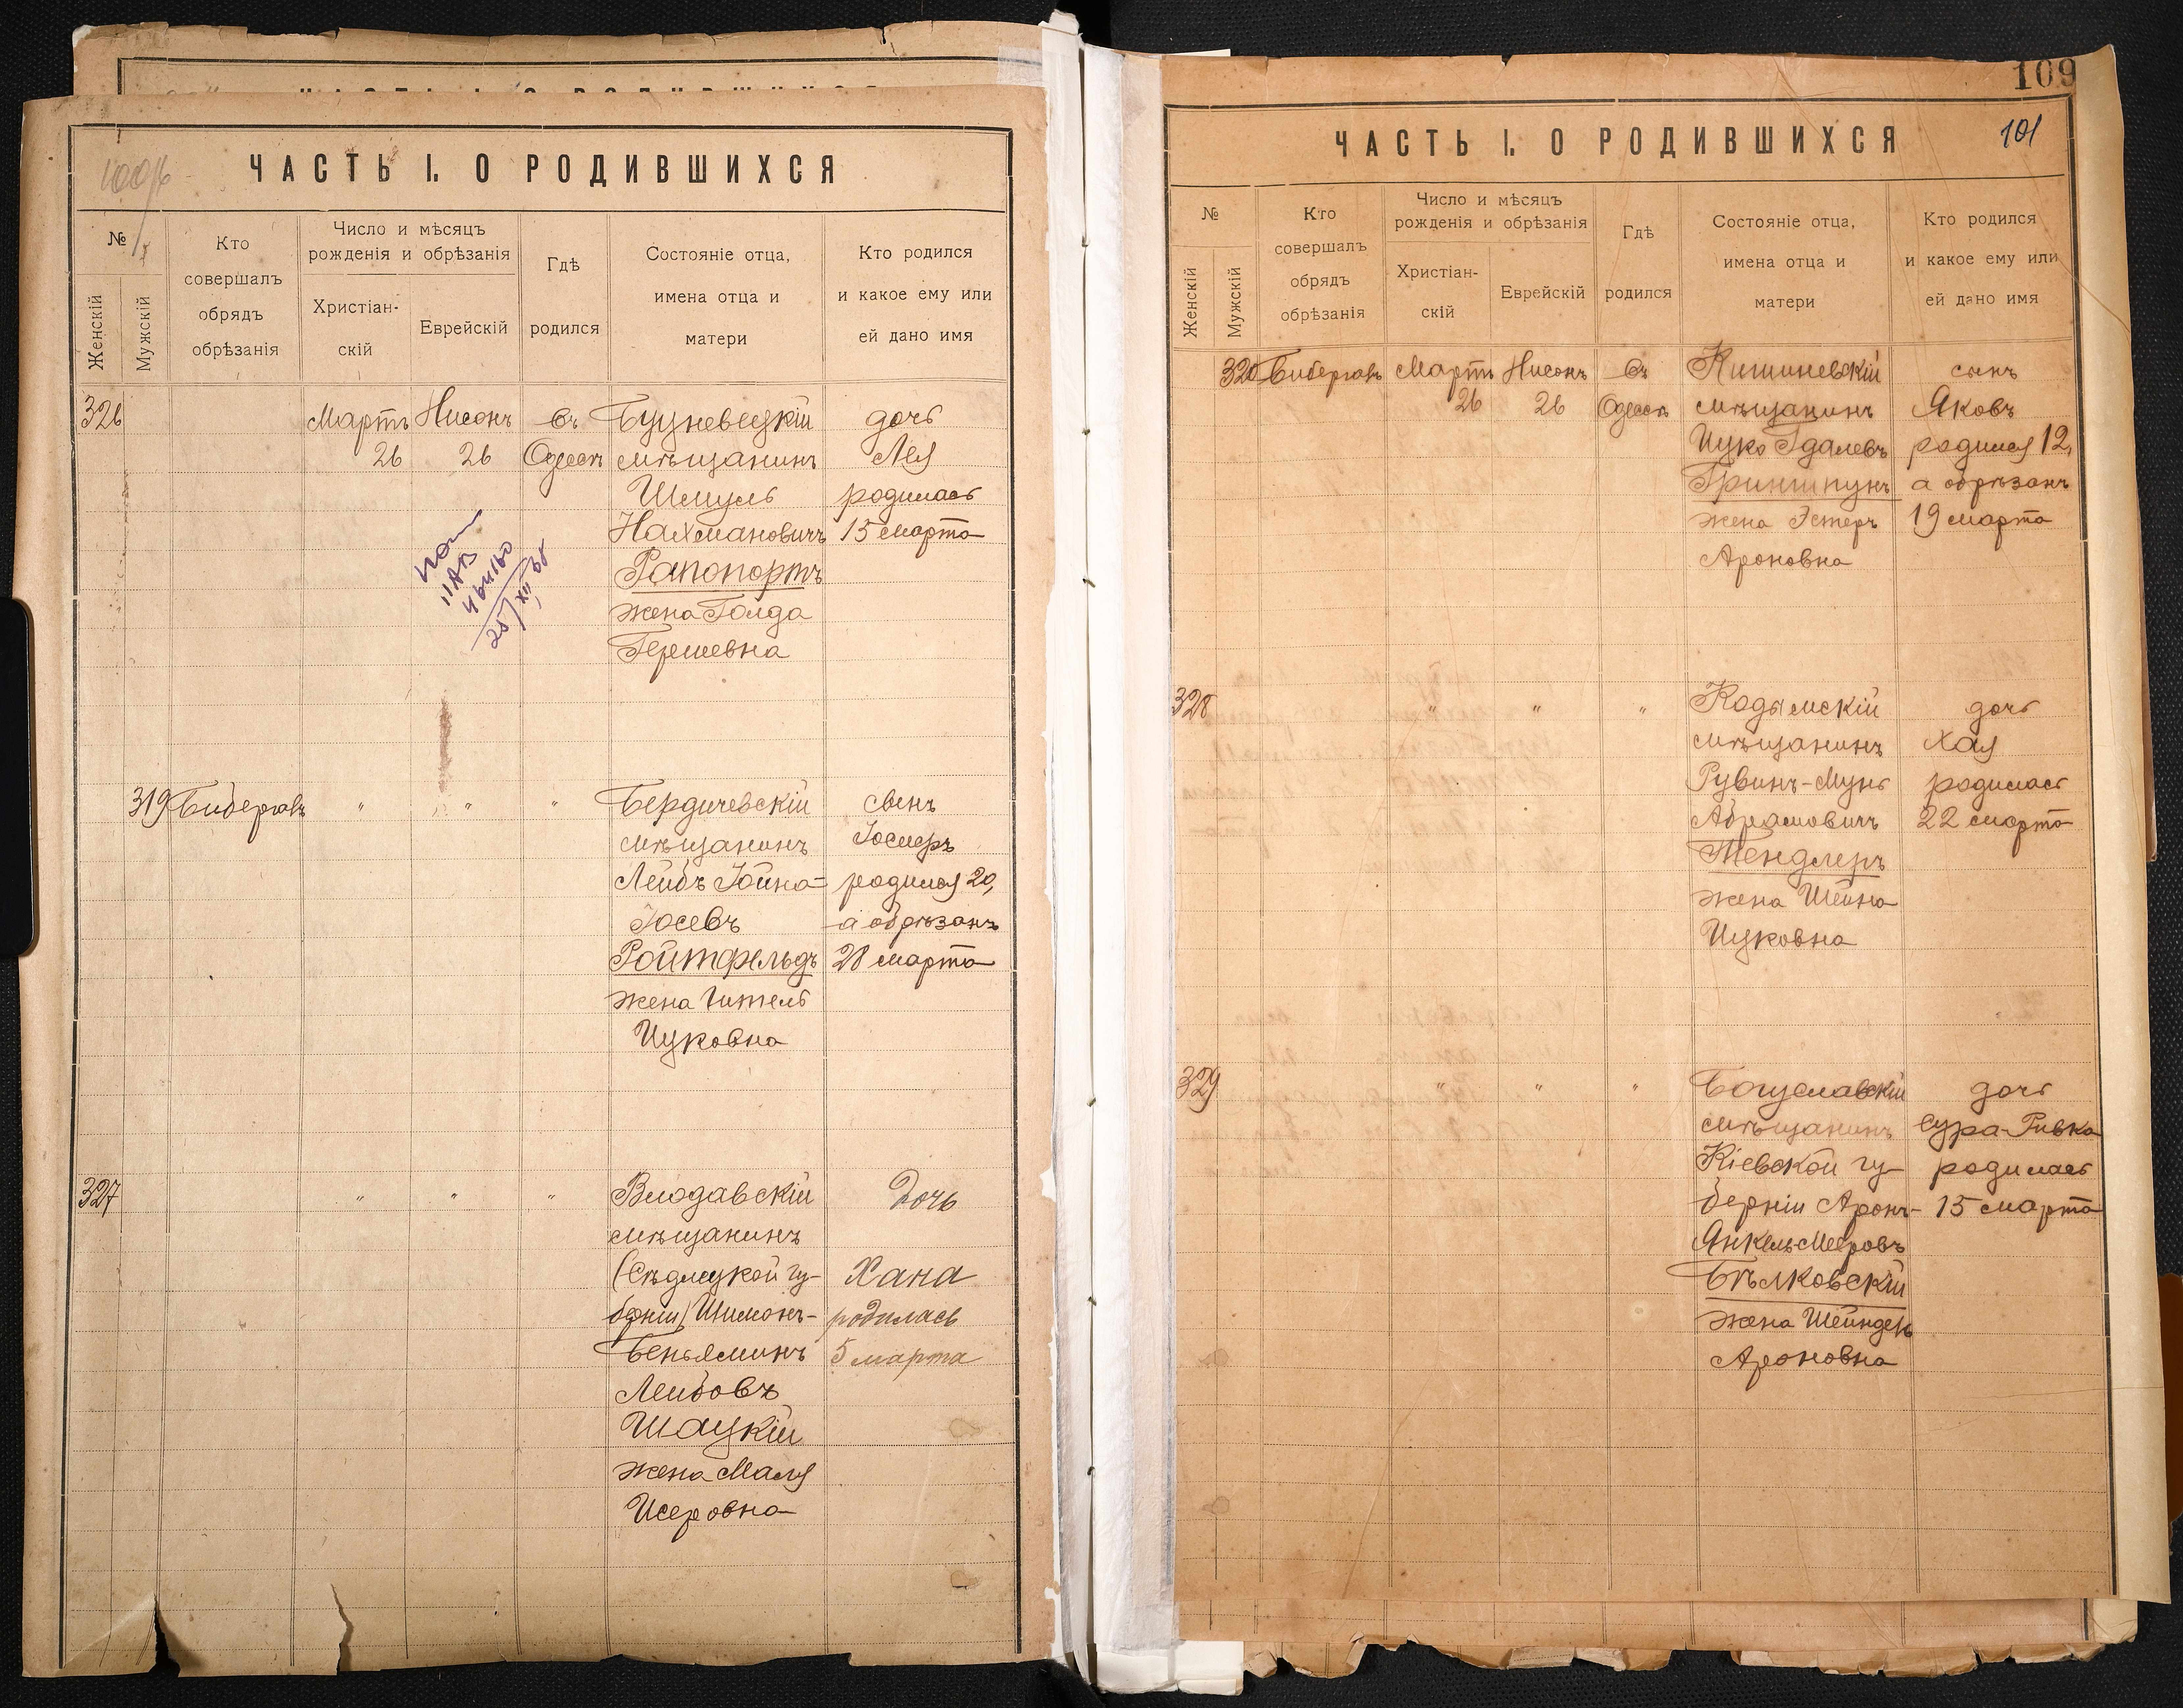 ЧАСТЬ I. О РОДИВШИХСЯ
№
Женскій
Мужскій
Кто
совершалъ
обрядъ
обрѣзанія
Число и мѣсяцъ
рожденія и обрѣзанія
Христіан-
скій
Еврейскій
Гдѣ
родился
Состояніе отца,
имена отца и
матери
Кто родился
и какое ему или
ей дано имя
326 Мартъ Нисонъ въ дочь
26 26 Одессѣ мѣщанинъ Лея
Шмуль родилась
Нахмановичъ 15 марта
Рапопортъ
жена Голда
Гершевна
319 Бибергалъ " " " Бердичевскій сынъ
мѣщанинъ
Лейбъ Іойна- родился 20,
Іосевъ а обрѣзанъ
Ройтфельдъ 28 марта
жена Гитель
Ицковна
327 " " " Влодавскій Дочь
мѣщанинъ
(Сѣдлецкой гу- Хана
берніи) Шимонъ- родилась
Беньяминъ 5 марта
Лейбовъ
Шацкій
жена Маля
Исеровна
109
ЧАСТЬ I. О РОДИВШИХСЯ 101
№
Женскій
Мужскій
Кто
совершалъ
обрядъ
обрѣзанія
Число и мѣсяцъ
рожденія и обрѣзанія
Христіан-
скій
Еврейскій
Гдѣ
родился
Состояніе отца,
имена отца и
матери
Кто родился
и какое ему или
ей дано имя
320 Бибергалъ Мартъ Нисонъ въ Кишиневскій сынъ
26 26 Одессѣ мѣщанинъ Яковъ
Ицко Гдалевъ родился 12,
Гриншпунъ а обрѣзанъ
жена Эстеръ 19 марта
Ароновна
328 " " " Кодымскій дочь
мѣщанинъ Хая
Рувинъ-Мунь родилась
Абрамовичъ 22 марта
Тендлеръ
жена Шейна
Ицковна
329 " " " Богуславскій дочь
мѣщанинъ Сура-Ривка
Кіевской гу- родилась
берніи Аронъ- 15 марта
Янкель-Мееровъ
Бѣлковскій
жена Шейндель
Ароновна